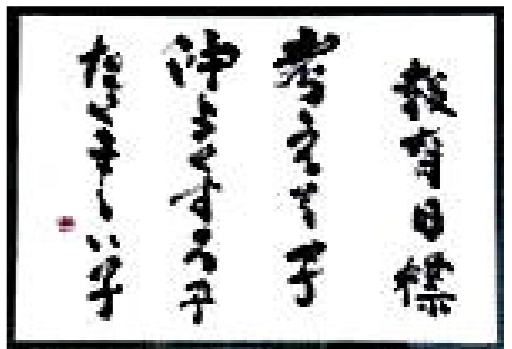 教育目標
考える子
仲よくする子
たくましい子